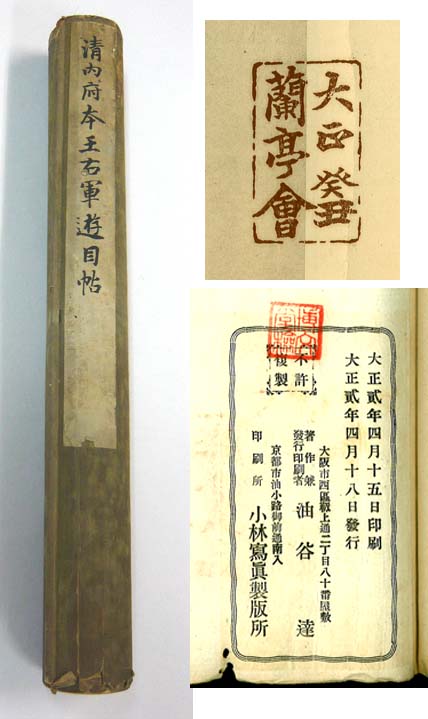 清内府本王右軍遊目帖
大正癸丑
蘭亭會
不許
複製
大正貳年四月十五日印刷
大正貳年四月十八日發行
大阪市西區靱上通二丁目八十番屋敷
著作兼
發行印刷者
油谷達
京都市油小路御前通南入
印刷所
小林寫眞製版所